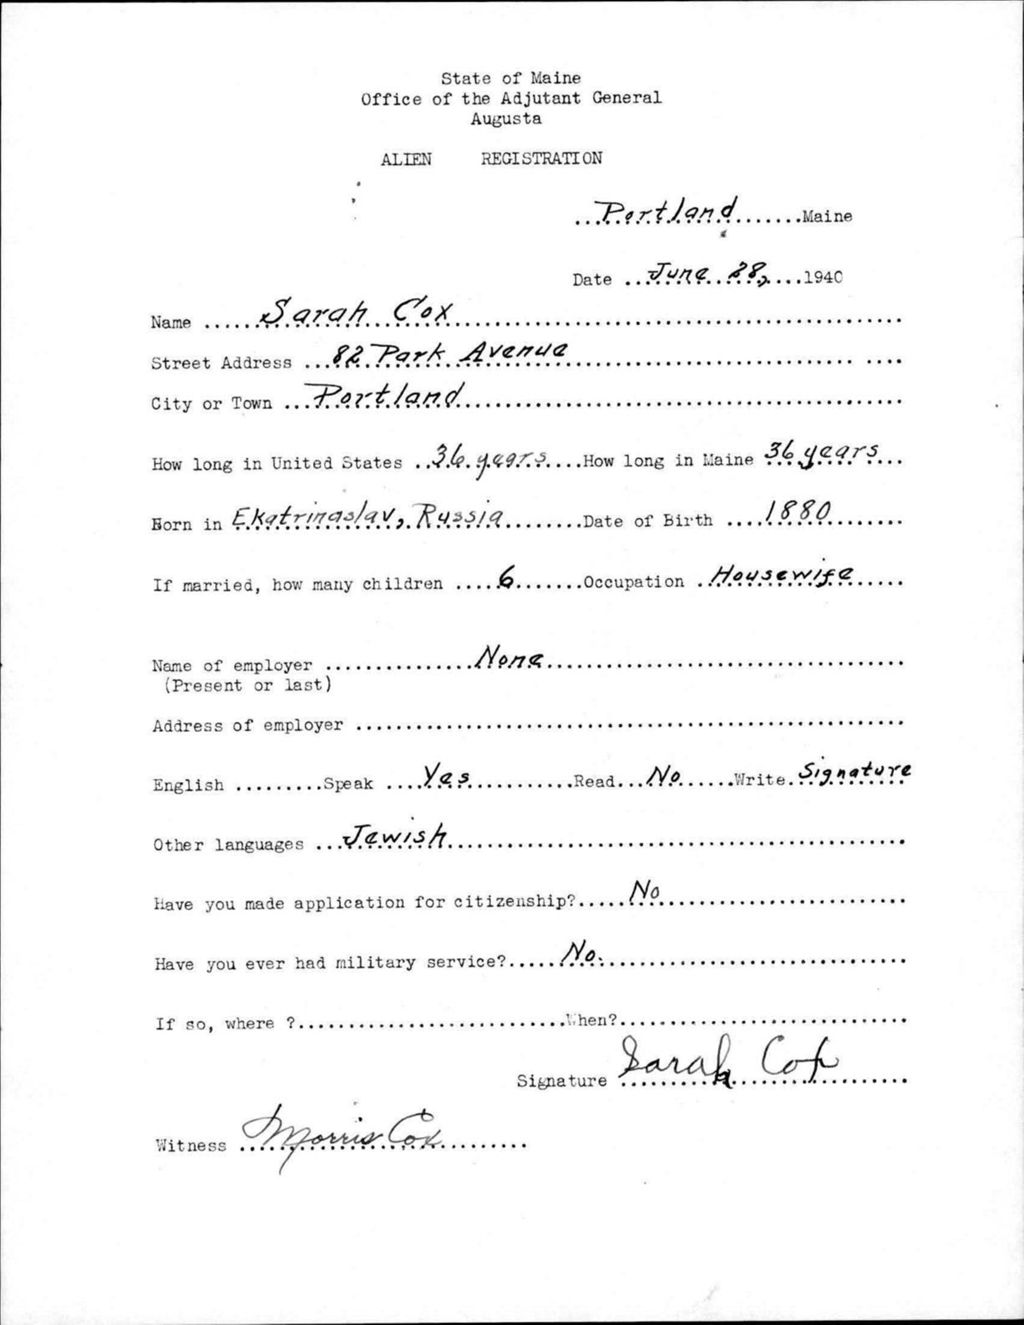 State of Maine
Office of the Adjutant General
Augusta
ALIEN REGISTRATION
...Portland.......Maine
Date ...June 28,....1940
Name ......Sarah Cox..........
Street Address ...82 Park Avenue..........
City or Town ...Portland..........
How long in United States ..36 years....How long in Maine 36 years...
Born in Ekatrinaslav, Russia........Date of Birth ....1880........
If married, how many children ....6.......Occupation ..Housewife.....
Name of employer ...............None..........
(Present or last)
Address of employer ..........
English .........Speak ....Yes...........Read...No......Write.Signature
Other languages ...Jewish..........
Have you made application for citizenship?.....No..........
Have you ever had military service?.....No...........
If so, where ?..........When?..........
Signature Sarah Cox
Witness Morris Cox